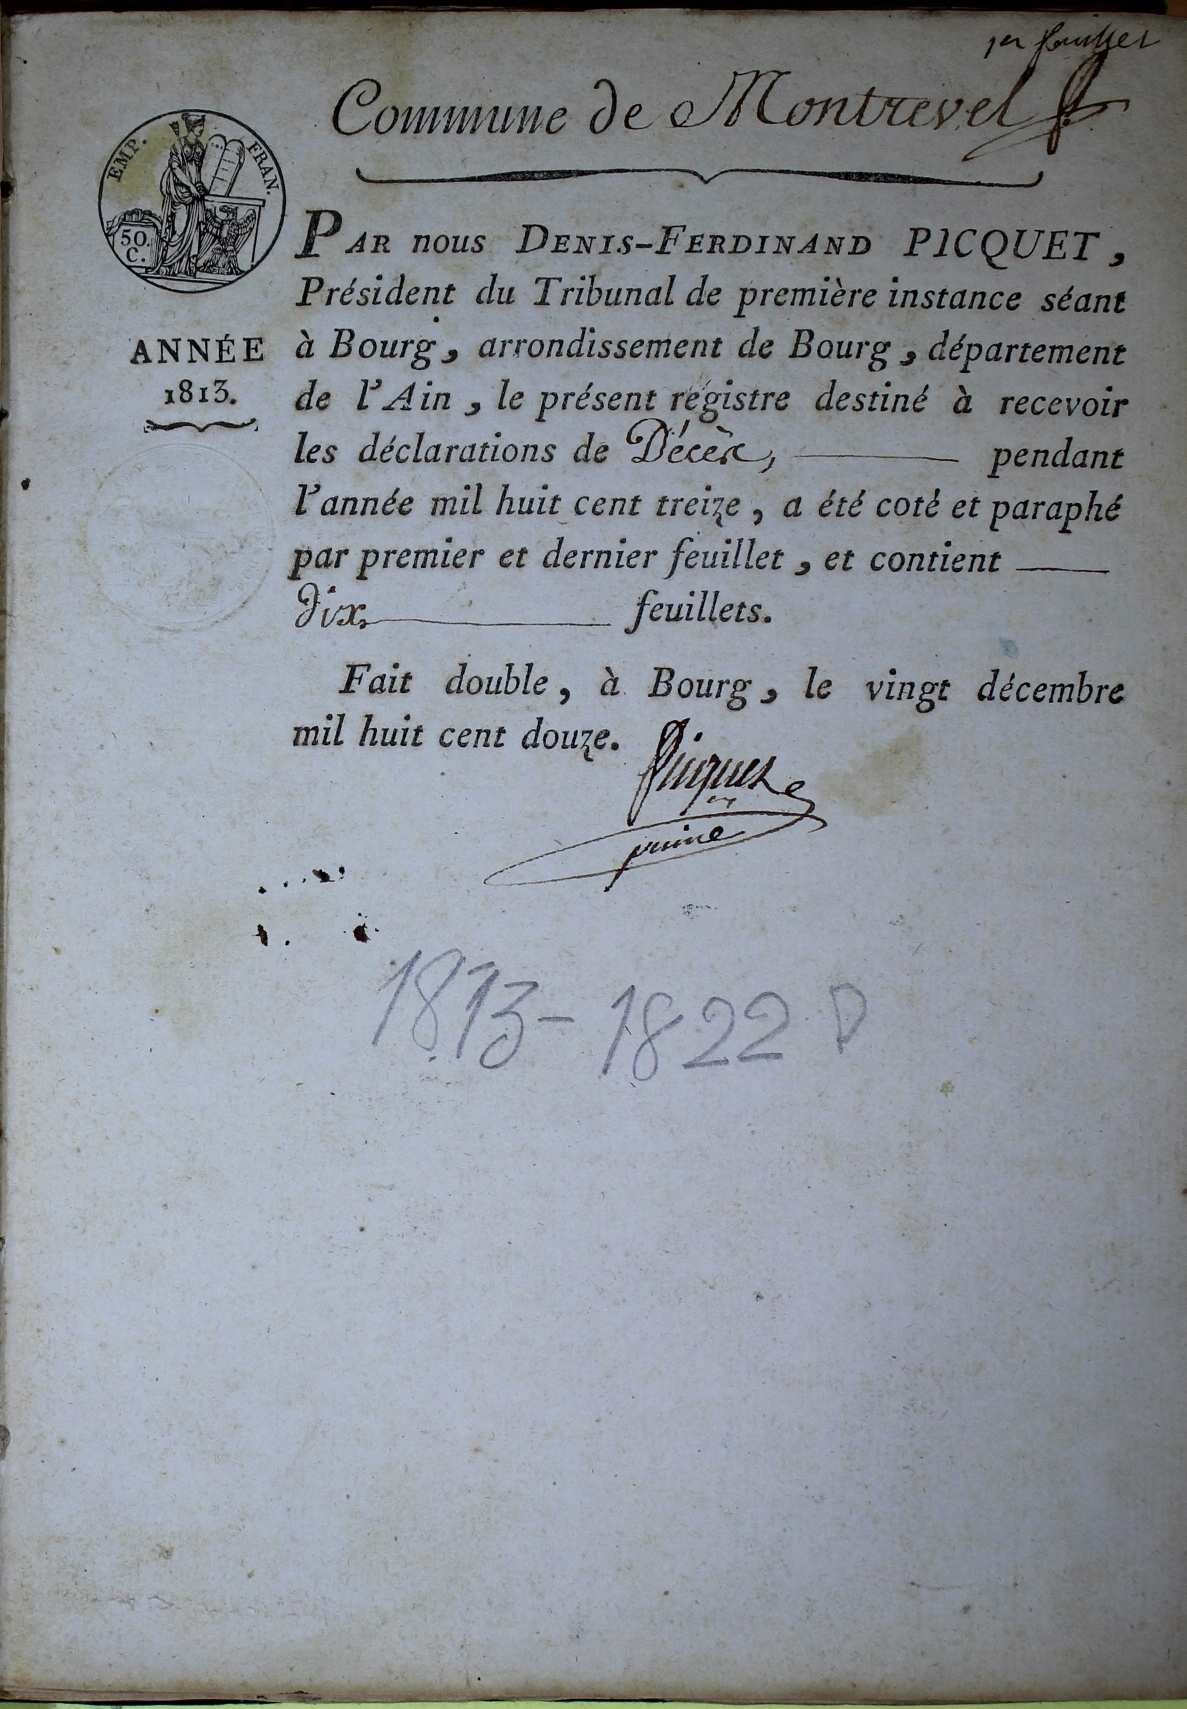 1er feuillet
Commune de Montrevel
EMP. FRAN.
50. C.
ANNÉE
1813.
PAR nous DENIS-FERDINAND PICQUET,
Président du Tribunal de première instance séant
à Bourg, arrondissement de Bourg, département
de l'Ain, le présent régistre destiné à recevoir
les déclarations de Décès, pendant
l'année mil huit cent treize, a été coté et paraphé
par premier et dernier feuillet, et contient
dix feuillets.
Fait double, à Bourg, le vingt décembre
mil huit cent douze.
Picquet
1813-1822 D